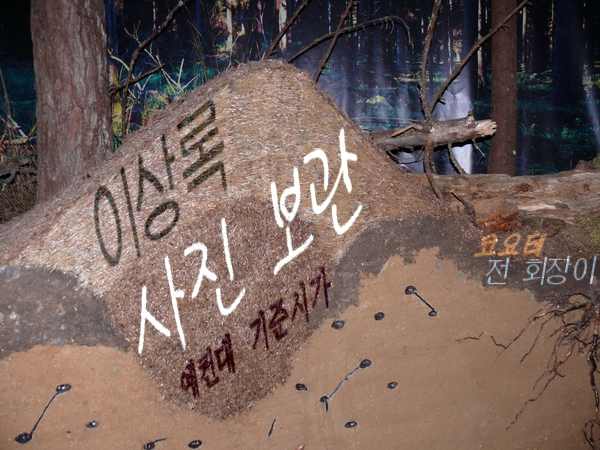 이상록
사진 보관
예컨대 기준시가
묘요터
전 회장이